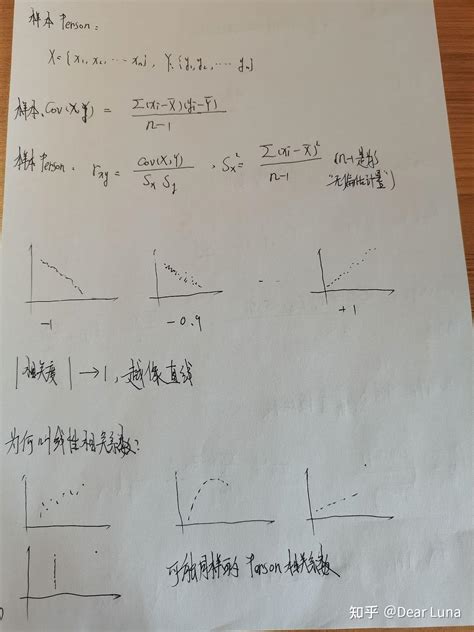 样本 Person:
X={x₁, x₂, ... xₙ}, Y:{y₁, y₂, ... yₙ}
样本 Cov(X,Y) = Σ(xi-X̄)(yi-Ȳ) / n-1
样本 Person. rxy = Cov(X,Y) / Sx Sy , Sx² = Σ(xi-X̄)² / n-1 (n-1是为
"无偏估计量")
-1 -0.9 +1
|相关度|→1, 越像直线
为何叫线性相关系数?
可能同样的 Person 相关系数
知乎 @Dear Luna